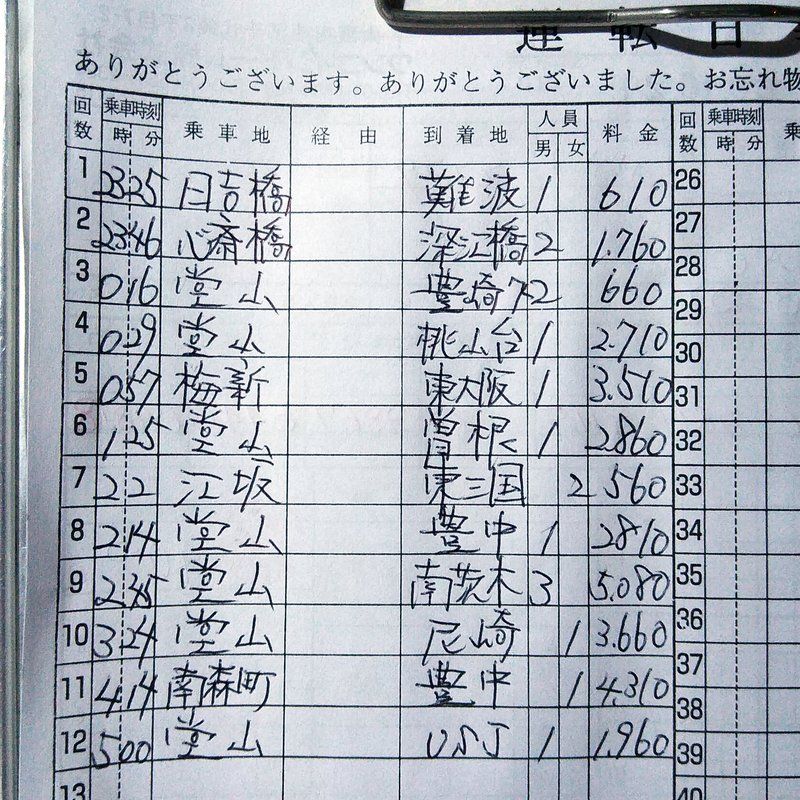 運転日
ありがとうございます。ありがとうございました。お忘れ物
回数 乗車時刻 時 分 乗車地 経由 到着地 人員 男 女 料金 回数 乗車時刻 時 分 乗
1 23 25 日吉橋 難波 1 610 26
2 23 46 心斎橋 深江橋 2 1.760 27
3 0 16 堂山 豊崎 2 660 28
4 0 29 堂山 桃山台 1 2.710 29
5 0 57 梅新 東大阪 1 3.510 30
6 1 25 堂山 曽根 1 2860 31
7 2 2 江坂 東三国 2 560 32
8 2 14 堂山 豊中 1 2810 33
9 2 45 堂山 南茨木 3 5.080 34
10 3 24 堂山 尼崎 1 3.660 35
11 4 14 南森町 豊中 1 4.310 36
12 5 00 堂山 USJ 1 1.960 37
13 38
39
40